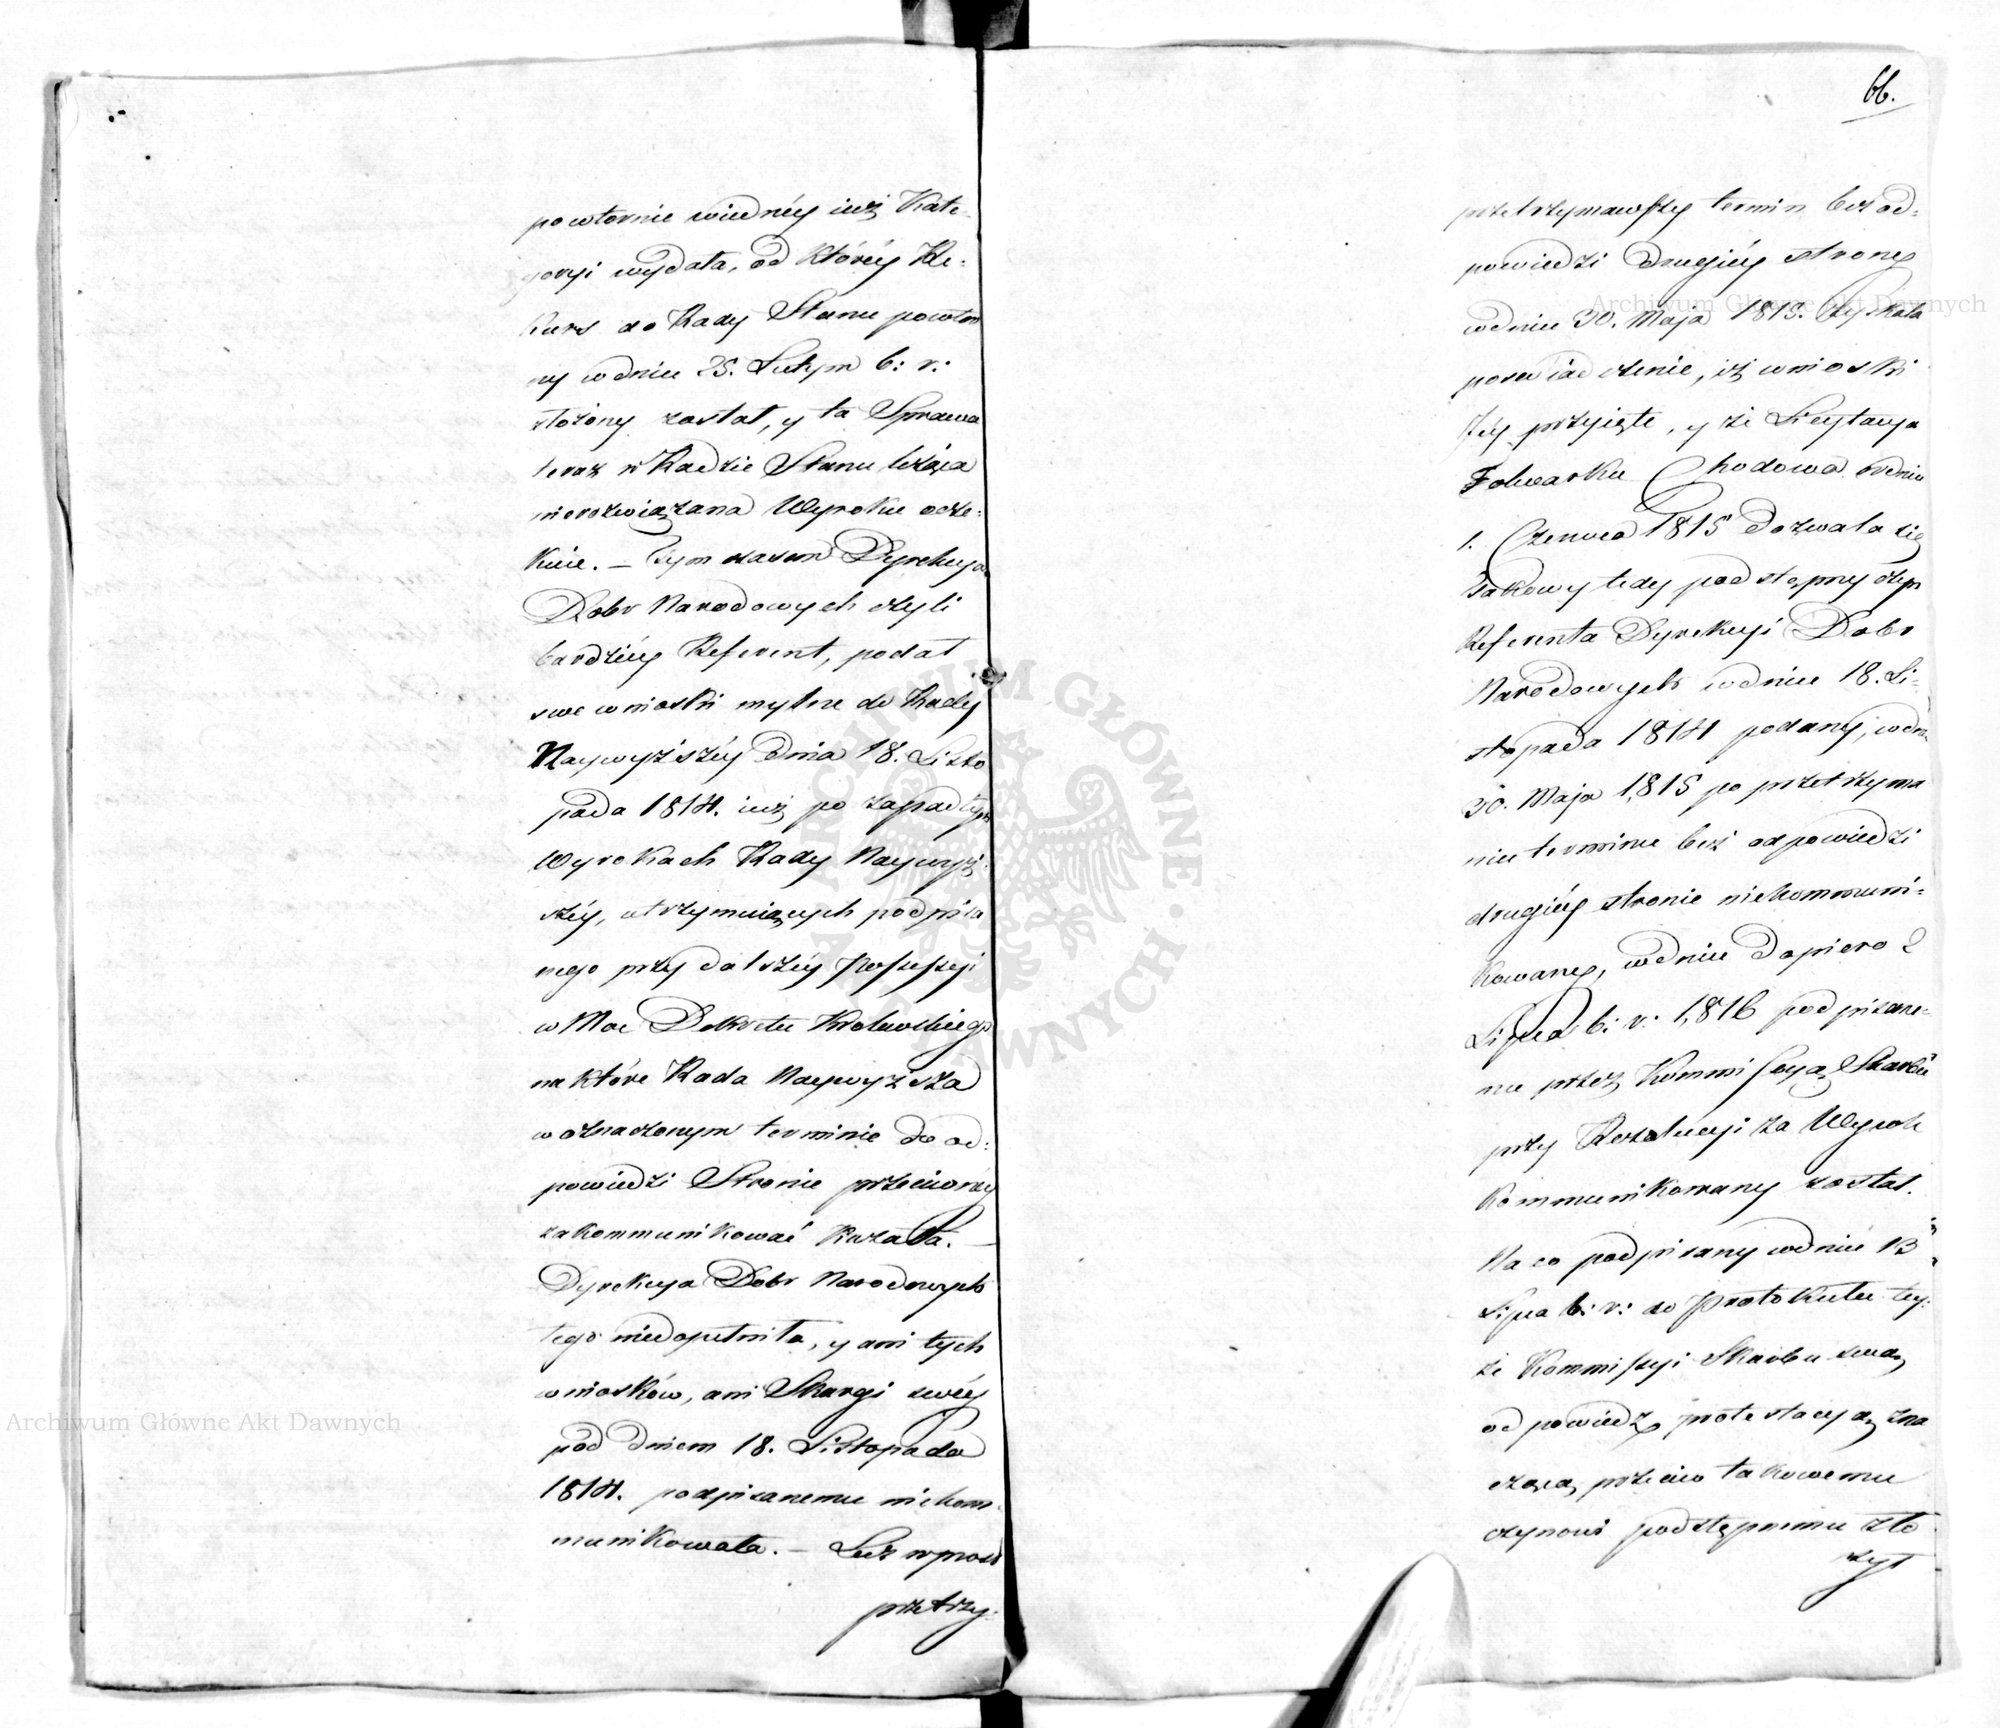 powtornie wiednéy iuż Kate-
goryi wydała, od któréy Re-
kurs do Rady Stanu powtor
ny w dniu 25. Lutym b: r:
złożony został, y ta Sprawa
teraz w Radzie Stanu leżąca
nierozwiązana Wyroku ocze-
kuie. – Tym czasem Dyrekcya
Dobr Narodowych czyli
bardziéy Referent, podał
swe wnioski mylne do Rady
Naywyższéy dnia 18. Listo
pada 1814. iuż po zapadłych
Wyrokach Rady Naywyż-
széy, utrzymuiących podpisa
nego przy dalszéy Possessyi
w Moc Dekretu Krolewskiego
na które Rada Naywyższa
w oznaczonym terminie do od-
powiedzi Stronie przeciwnéy
zakommunikować kazała. –
Dyrekcya Dobr Narodowych
tego niedopełniła, y ani tych
wniosków, ani Skargi swéy
pod dniem 18. Listopada
1814. podpisanemu niekom-
munikowała. – Lecz wprost
przetrzy-
66.
przetrzymawszy termin bez od-
powiedzi drugiéy strony
w dniu 30. Maja 1815. zyskała
poswiadczenie, iż wnioski
Jéy przyięte, y że Licytacya
Folwarku Chodowa w dniu
1. Czerwca 1815 dozwala się
Takowy tedy podstępny czyn
Referenta Dyrekcyi Dobr
Narodowych w dniu 18. Li-
stopada 1814 podany, w dniu
30. Maja 1815 po przetrzyma
niu terminu bez odpowiedzi
drugiéy stronie niekommuni-
kowany, w dniu dopiero 2
Lipca b: r: 1816 podpisane-
mu przez Kommissyą Skarbu
przy Rezolucyi za Wyrok
kommunikowany został.
Na co podpisany w dniu 13
Lipca b: r: do Protokułu tey-
że Kommissyi Skarbu swą
odpowiedz, protestacyą zna
czącą przeciw takowemu
czynowi podstępnemu zło
żył
Archiwum Główne Akt Dawnych
Archiwum Główne Akt Dawnych
ARCHIWUM GŁÓWNE AKT DAWNYCH